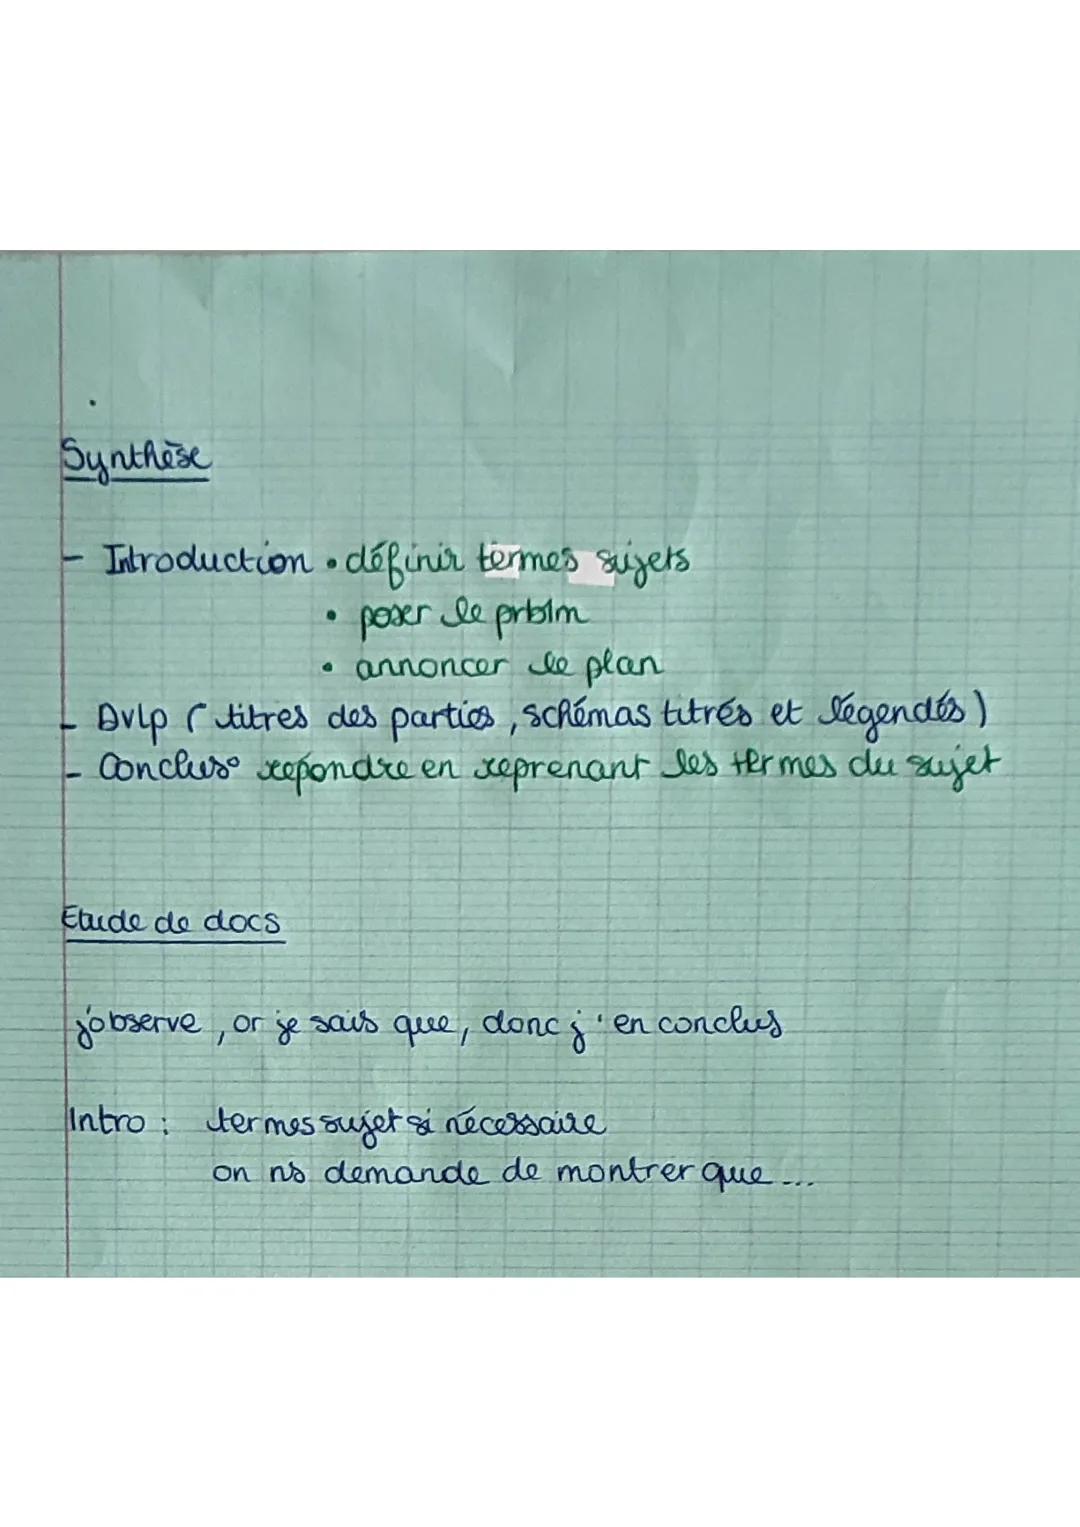 Synthèse
- Introduction • définir termes sujets
• poser le prblm
• annoncer le plan
- Dvlp (titres des parties, schémas titrés et légendés)
- Conclus° repondre en reprenant les termes du sujet
Etude de docs
j'observe, or je sais que, donc j'en conclus
Intro : termes sujet si nécessaire
on ns demande de montrer que ...